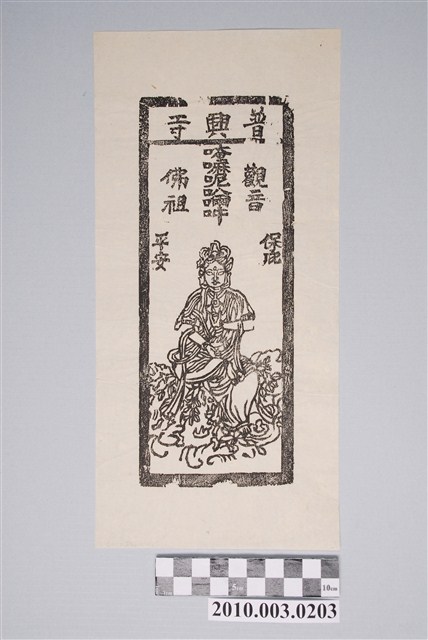 普興寺
觀音
嘛呢吽
佛祖
保庇
平安
5cm
10cm
2010.003.0203